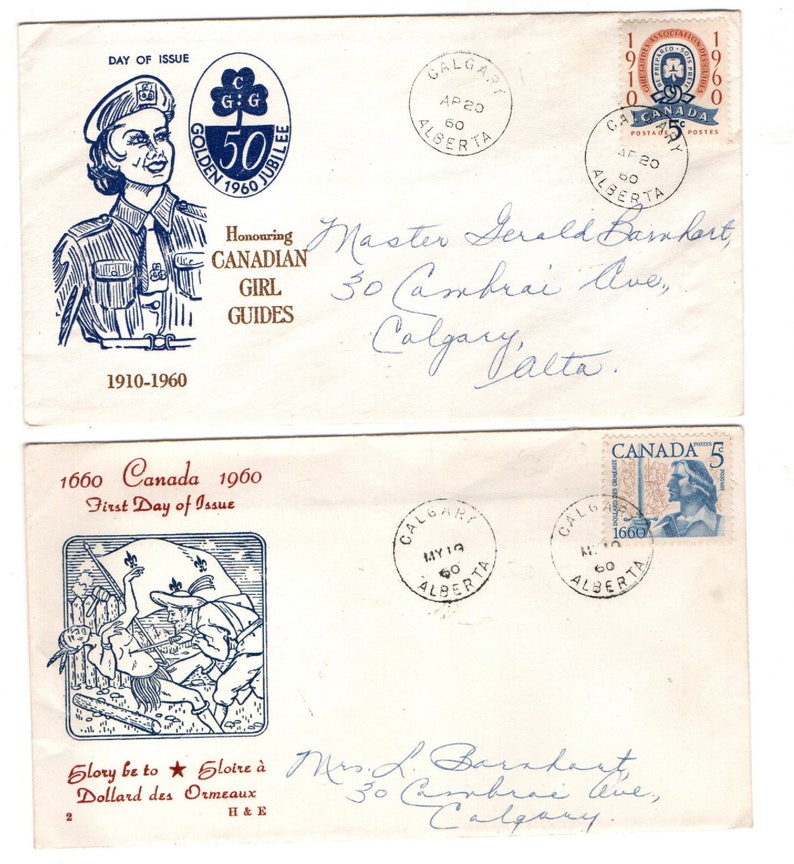 DAY OF ISSUE
C
G G
50
GOLDEN 1960 JUBILEE
Honouring
CANADIAN
GIRL
GUIDES
1910-1960
CALGARY
AP 20
60
ALBERTA
1910 1960
GIRL GUIDES ASSOCIATION DES GUIDES
BE PREPARED · SOIS PRÊT
CANADA
5c
POSTAGE POSTES
CALGARY
AP 20
60
ALBERTA
Master Gerald Barnhart,
30 Cambrai Ave.,
Calgary,
Alta.
1660 Canada 1960
First Day of Issue
Glory be to ★ Gloire à
Dollard des Ormeaux
2 H & E
CALGARY
MY 19
60
ALBERTA
CANADA POSTES 5c
POSTAGE
DOLLARD DES ORMEAUX
1660
CALGARY
60
ALBERTA
Mrs. L. Barnhart,
30 Cambrai Ave.,
Calgary.